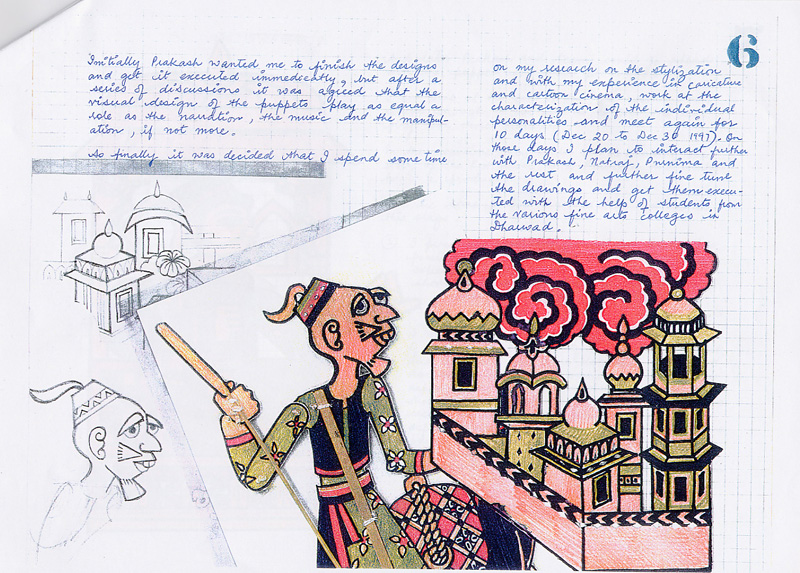 Initially Prakash wanted me to finish the designs
and get it executed immedeately, but after a
series of discussions it was agreed that the
visual design of the puppets play as equal a
role as the narration, the music and the manipul-
ation, if not more.
So finally it was decided that I spend some time
6
on my research on the stylization
and with my experience in caricature
and cartoon cinema, work at the
characterization of the individual
personalities and meet again for
10 days (Dec 20 to Dec 30 1997). On
those days I plan to interact further
with Prakash, Natraj, Purnima and
the rest and further fine tune
the drawings and get them execu-
ted with the help of students from
the various fine arts colleges in
Dharwad.